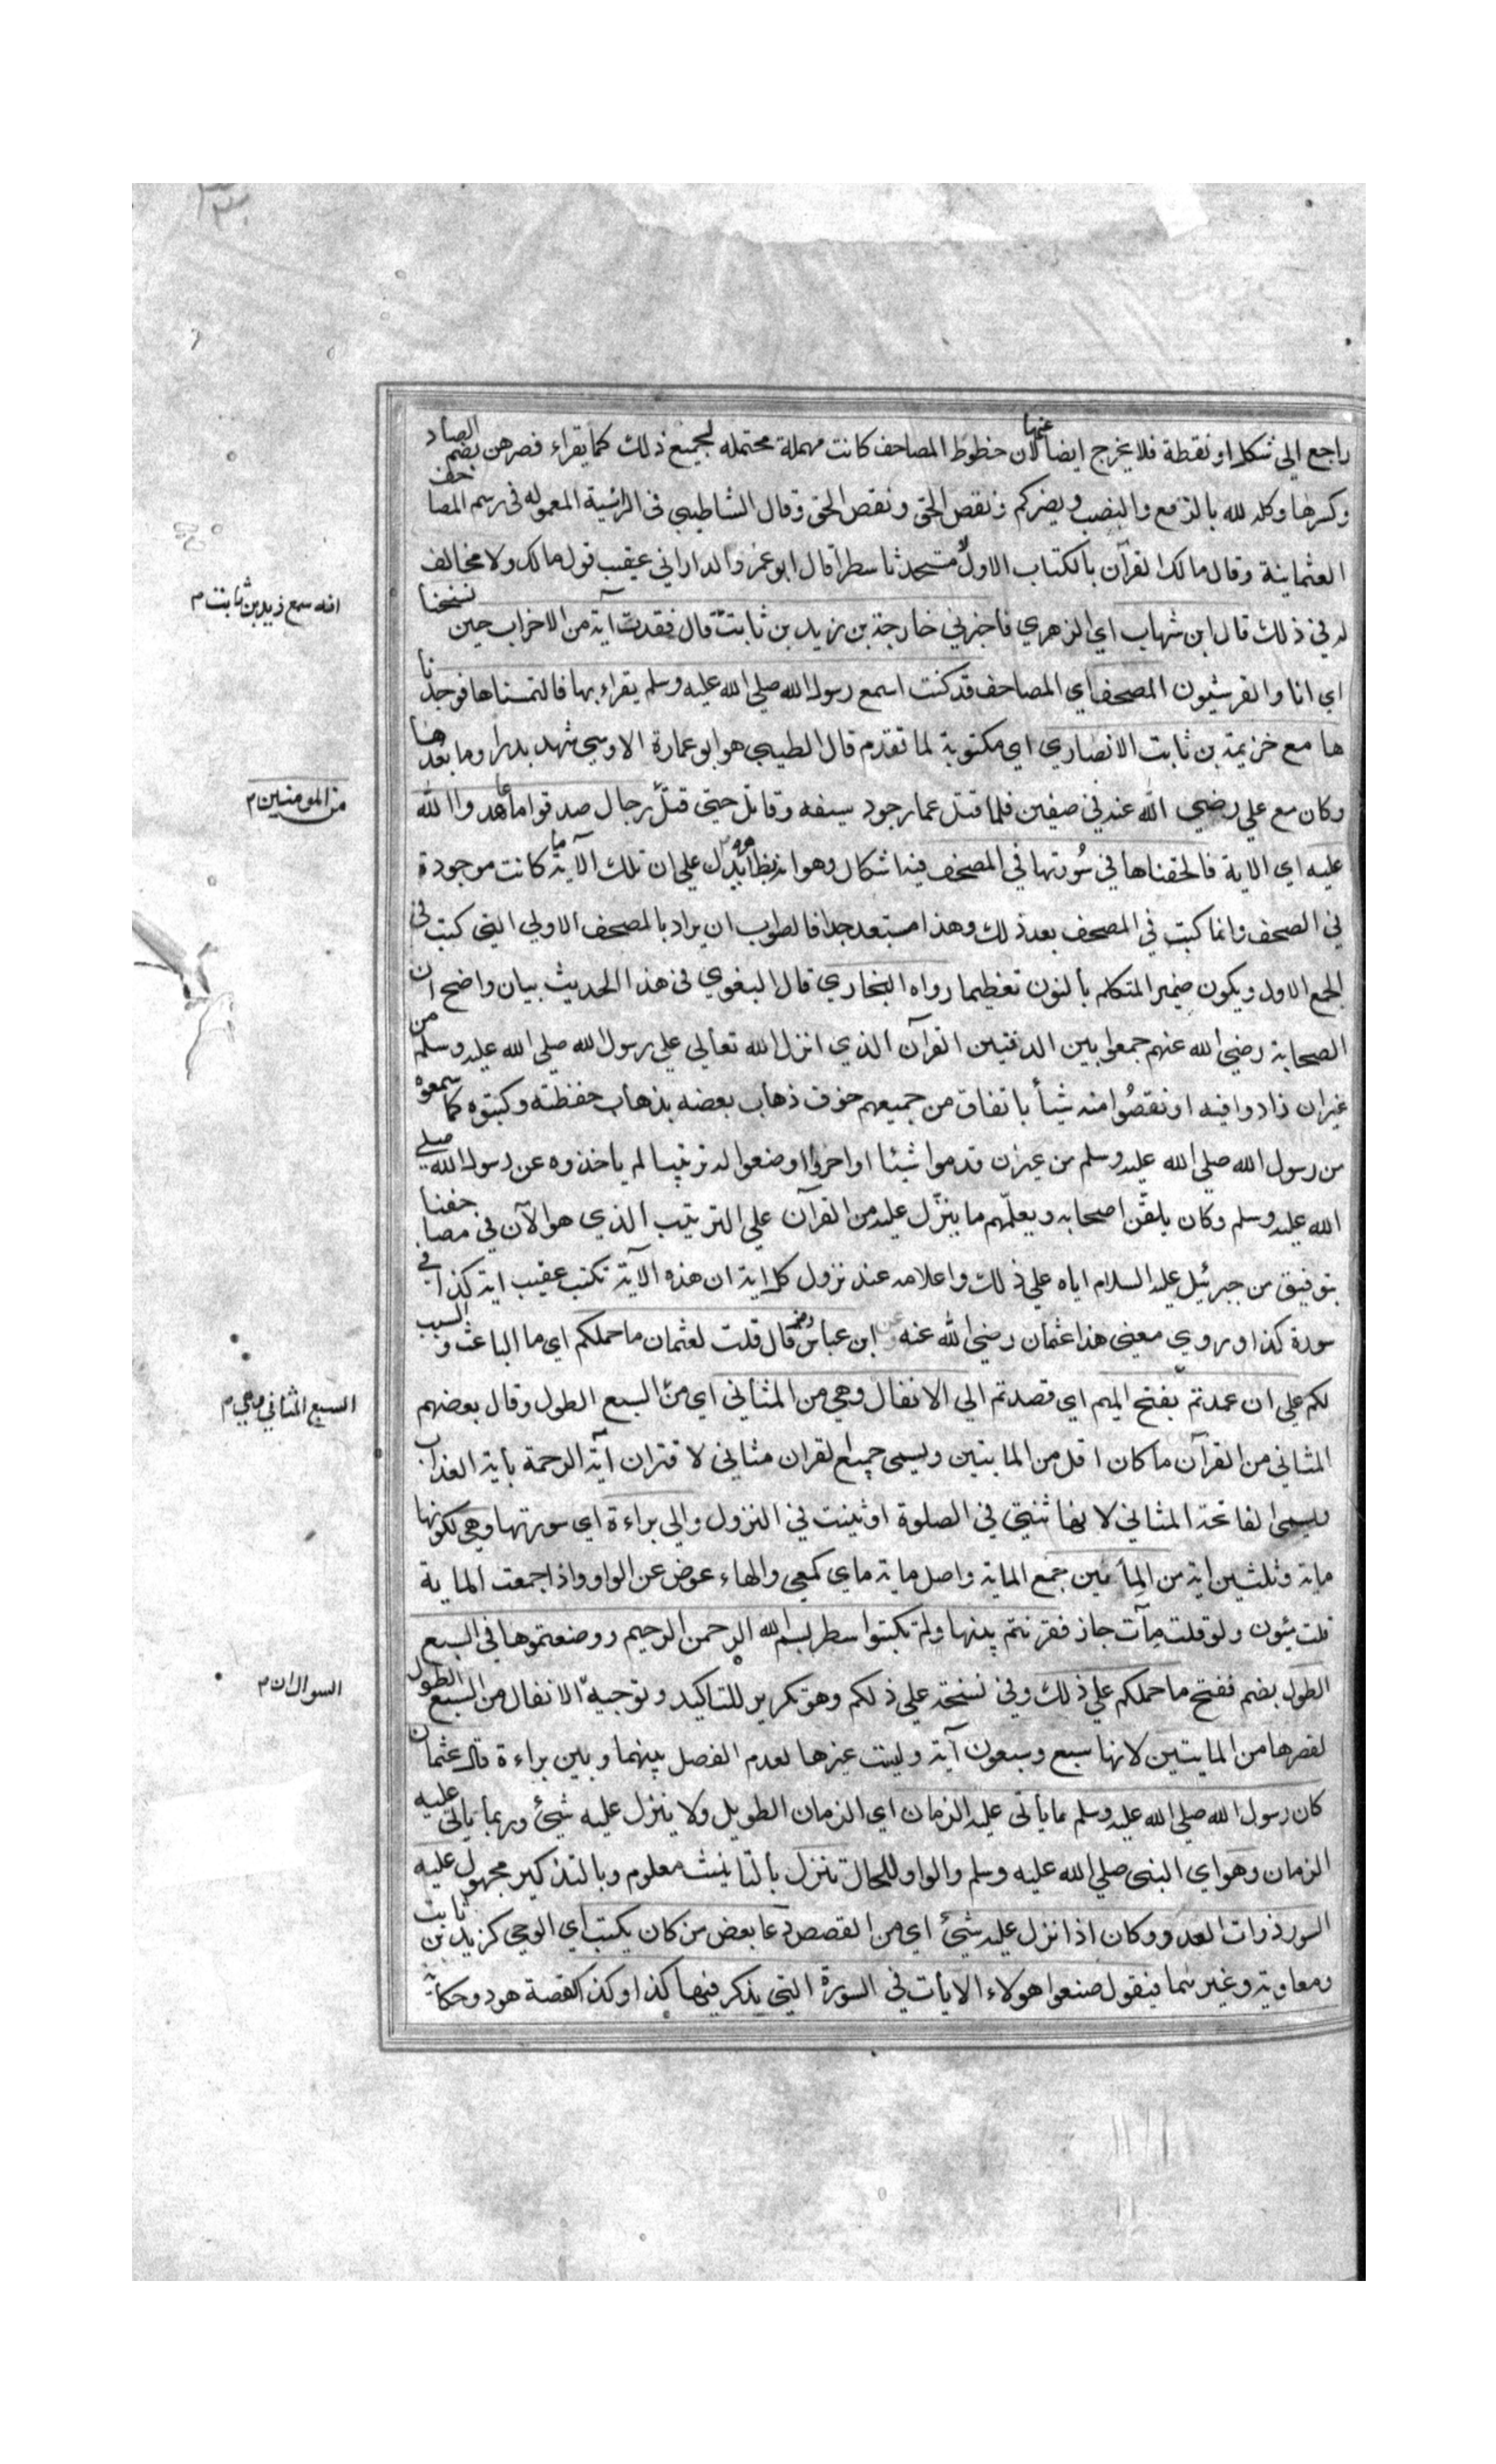 راجع الي شكل او نقطة فلا يخرج ايضا عنها لان خطوط المصاحف كانت مهملة محتمله لجميع ذلك كما يقراء فصرهن بضم الصاد
وكسرها وكله لله بالرفع والنصب ويضركم ونقص الحق ونقص الحق وقال الشاطبي في الرائية المعموله في رسم المصاحف
العثمانية وقال مالك القرآن بالكتاب الاول لا مستحدثا سطرا قال ابو عمرو الداراني عقيب قول مالك ولا مخالف
له في ذلك قال ابن شهاب اي الزهري فاخبرني خارجة بن زيد بن ثابت قال فقدت آية من الاحزاب حين نسخنا
انه سمع زيد بن ثابت م
اي انا والقرشيون المصحف اي المصاحف قد كنت اسمع رسول الله صلي الله عليه وسلم يقراء بها فالتمسناها فوجدنا
ها مع خزيمة بن ثابت الانصاري اي مكتوبة لما تقدم قال الطيبي هو ابو عمارة الاوسي شهد بدرا وما بعدها
وكان مع علي رضي الله عنه في صفين فلما قتل عمار جرد سيفه وقاتل حتي قتل رجال صدقوا ما عاهدوا الله
من المومنين م
عليه اي الاية فالحقناها في سُورتها في المصحف فيه اشكال وهو انه بظاهره يدل علي ان تلك الآية ما كانت موجودة
في الصحف وانما كتبت في المصحف بعد ذلك وهذا مستبعد جدا فالصواب ان يراد بالمصحف الاولي التي كتبت في
الجمع الاول ويكون ضمير المتكلم بالنون تعظيما رواه البخاري قال البغوي في هذا الحديث بيان واضح ان
الصحابة رضي الله عنهم جمعوا بين الدفتين القرآن الذي انزل الله تعالي علي رسول الله صلي الله عليه وسلم من
غير ان زادوا فيه او نقصُوا منه شيأ باتفاق من جميعهم خوف ذهاب بعضه بذهاب حفظته وكتبوه كما سمعوه
من رسول الله صلي الله عليه وسلم من غير ان قدموا شيئا او اخروا او ضعوا له ترتيبا لم ياخذوه عن رسول الله صلي
الله عليه وسلم وكان يلقّن اصحابه ويعلّمهم ما ينزّل عليه من القرآن علي الترتيب الذي هو الآن في مصاحفنا
بتوفيق من جبرئيل عليه السلام اياه علي ذلك واعلامه عند نزول كل اية ان هذه الآية تكتب عقيب اية كذا في
سورة كذا وروي معني هذا عثمان رضي الله عنه وعن ابن عباس رض قال قلت لعثمان ما حملكم اي ما الباعث والسبب
لكم علي ان عمدتم بفتح الميم اي قصدتم الي الانفال وهي من المثاني اي من السبع الطول وقال بعضهم
السبع المثاني وهي م
المثاني من القرآن ما كان اقل من الماىتين ويسمي جميع القران مثاني لاقتران آية الرحمة بأية العذاب
ويسمي الفاتحة المثاني لانها تثنى في الصلوة او ثنيت في النزول والي براءة اي سورتها وهي لكونها
ماية وثلثين اية من المِأتين جمع الماية واصل ماية ماي كمعي والهاء عوض عن الواو واذا جمعت الماية
قلت مئون ولو قلت مآت جاز فقرنتم بينها ولم تكتبوا سطر بسم الله الرحمن الرحيم ووضعتموها في السبع
الطول بضم ففتح ما حملكم علي ذلك وفي نسخة علي ذلكم وهو تكرير للتاكيد وتوجيه الانفال من السبع الطول
السوال ان م
لقصرها من الماىتين لانها سبع وسبعون آية وليت غيرها لعدم الفصل بينهما وبين براءة قال عثمان
كان رسول الله صلي الله عليه وسلم مما يأتي عليه الزمان اي الزمان الطويل ولا ينزل عليه شيئ وربما يأتي عليه
الزمان وهو اي النبي صلي الله عليه وسلم والواو للحال تنزل بالتانيث معلوم وبالتذكير مجهول عليه
السور ذوات العدد وكان اذا نزل عليه شيئ اي من القصص دعا بعض من كان يكتب اي الوحي كزيد بن ثابت
ومعاوية وغيرهما فيقول ضعوا هولاء الايأت في السورة التي يذكر فيها كذا وكذا كقصة هود وحكاية